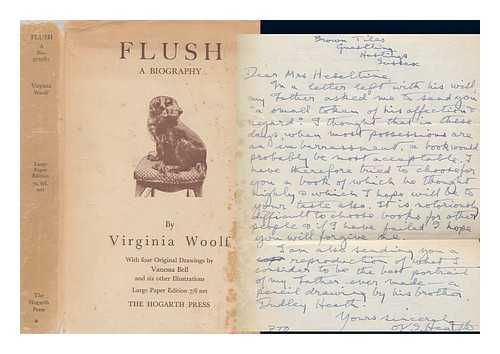 FLUSH
A
BIOGRAPHY
Virginia
Woolf
Large
Paper
Edition
7s. 6d.
net
The
Hogarth
Press
FLUSH
A BIOGRAPHY
By
Virginia Woolf
With four Original Drawings by
Vanessa Bell
and six other Illustrations
Large Paper Edition 7/6 net
THE HOGARTH PRESS
Brown Tiles
Guestling
Hastings
Sussex
Dear Mrs Heseltine,
In a letter left with his will
my Father asked me to send you
a small token of his affection &
regard. I thought that in these
days, when most possessions are
an embarrassment, a book would
probably be most acceptable. I
have therefore tried to choose for
you a book of which he thought
highly & which I hope will be to
your taste also. It is notoriously
difficult to choose books for other
people & if I have failed I hope
you will forgive me.
I am also sending you a
reproduction of what I
consider to be the best portrait
of my Father ever made - a
pencil drawing by his brother
Dudley Heath.
Yours sincerely
Heath
PTO